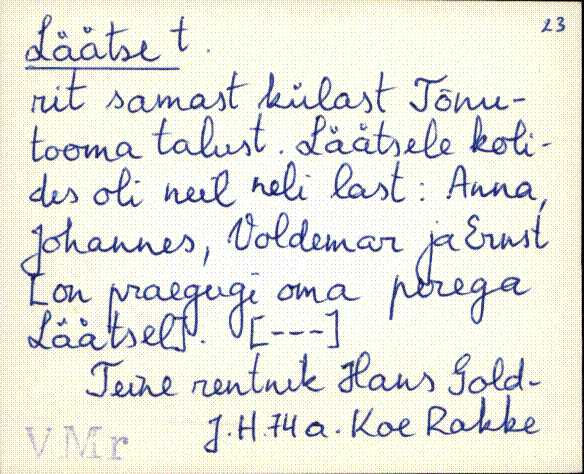 23
Läätse t.
rit samast külast Tõnu-
tooma talust. Läätsele koli-
des oli neil neli last: Anna,
Johannes, Voldemar ja Ernst
[on praegugi oma perega
Läätsel]. [---]
Teine rentnik Hans Gold-
J.H. 74 a. Koe Rakke
VMr